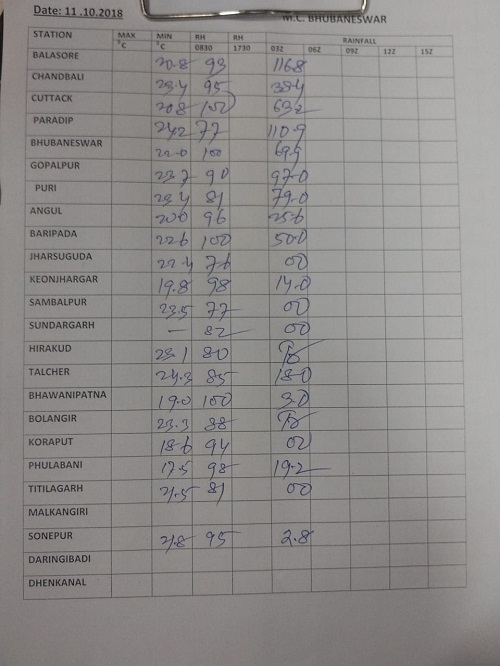 Date: 11.10.2018
M.C. BHUBANESWAR
STATION MAX °C MIN °C RH 0830 RH 1730 RAINFALL
03Z 06Z 09Z 12Z 15Z
BALASORE 20.8 93 116.8
CHANDBALI 23.4 95 38.4
CUTTACK 20.8 100 63.2
PARADIP 24.2 77 110.9
BHUBANESWAR 22.0 100 69.9
GOPALPUR 23.7 90 97.0
PURI 23.4 81 79.0
ANGUL 20.0 96 25.6
BARIPADA 22.6 100 50.0
JHARSUGUDA 22.4 76 00
KEONJHARGAR 19.8 98 14.0
SAMBALPUR 23.5 77 00
SUNDARGARH — 82 00
HIRAKUD 23.1 80
TALCHER 24.3 85 18.0
BHAWANIPATNA 19.0 100 3.0
BOLANGIR 23.3 88
KORAPUT 18.6 94 00
PHULABANI 17.5 98 19.2
TITILAGARH 21.5 81 00
MALKANGIRI
SONEPUR 21.8 95 2.8
DARINGIBADI
DHENKANAL